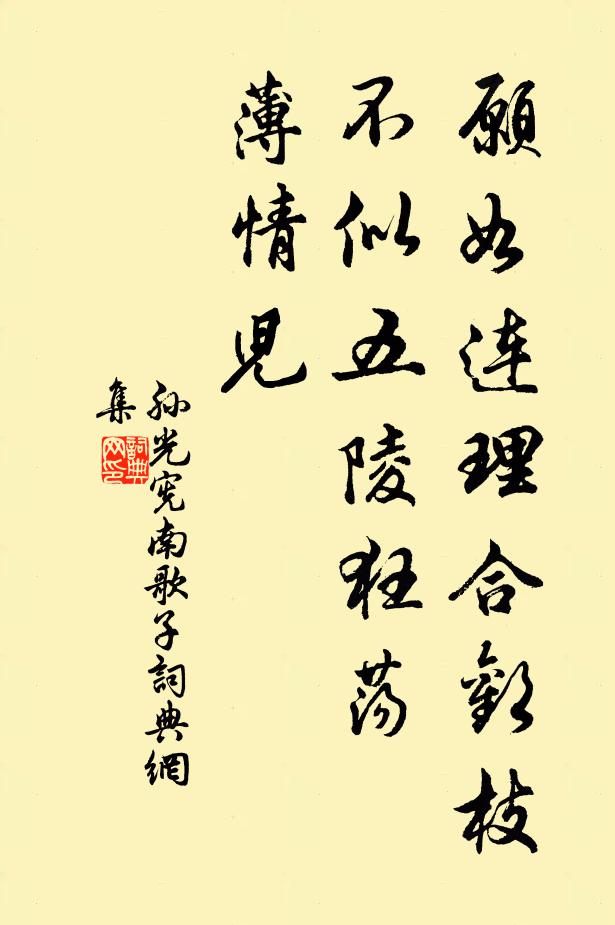 願如連理合歡枝
不似五陵狂蕩
薄情兒
孫光憲南歌子詞典網
集
詞典
网印